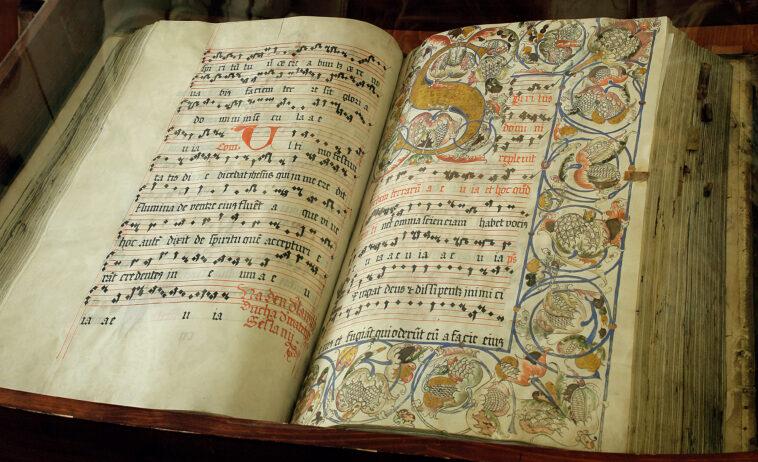 ua bis faciem ter re sit glori a
do mini in se cu la a e
u ia Com. U l ti mo festiui
ta tis di e dicebat jhesus qui in me cre dit
flumina de ventre eius fluēt a que vi ue
hoc autē dixit de spiritu quē accepturi e
rāt credentes in e um a e u
ia a e u ia
S piritus
domi ni
repleuit
terrarū a e u ia et hoc qd̄
ti net omnia scien ciam habet vocis
u ia a e u ia a e u ia ps
Exurgat deus & dissipentr inimici
et fugiāt qui oderūt eū a facie eius